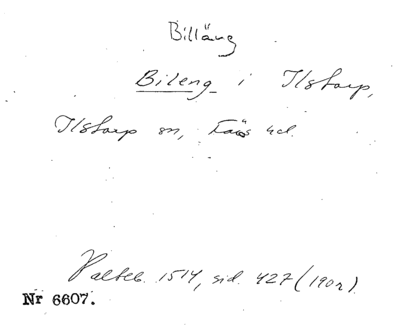 Billäng
Bileng i Ilstorp,
Ilstorp sn, Färs hd.
Palteb. 1514, sid. 427 (190r).
Nr 6607.